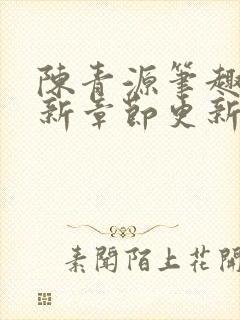 陳青源筆趣
新章節更新
素聞陌上花開